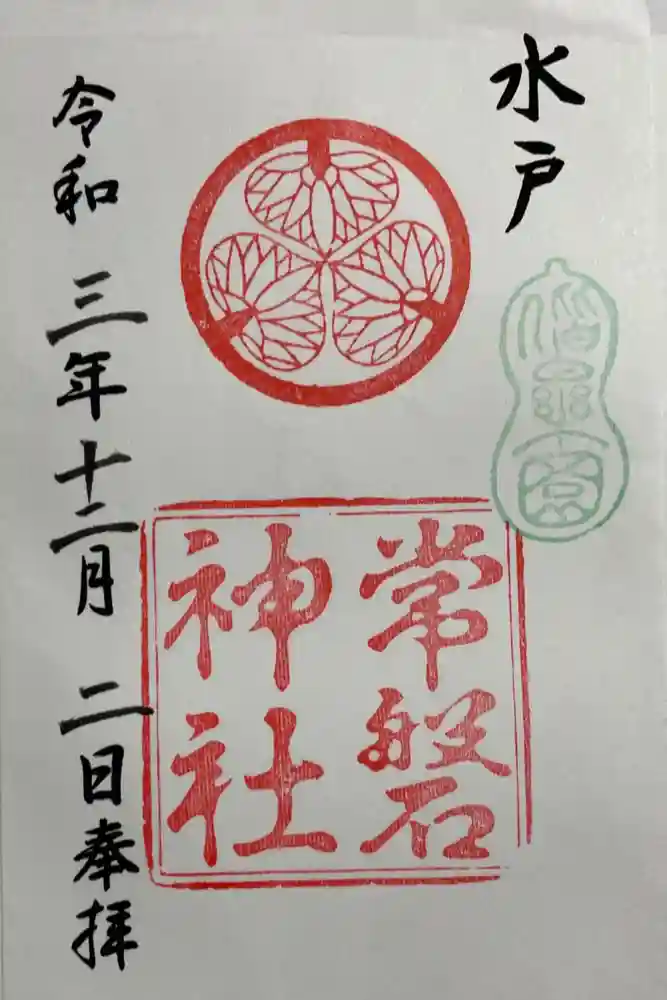 水戸
常磐
神社
令和三年十二月二日奉拝